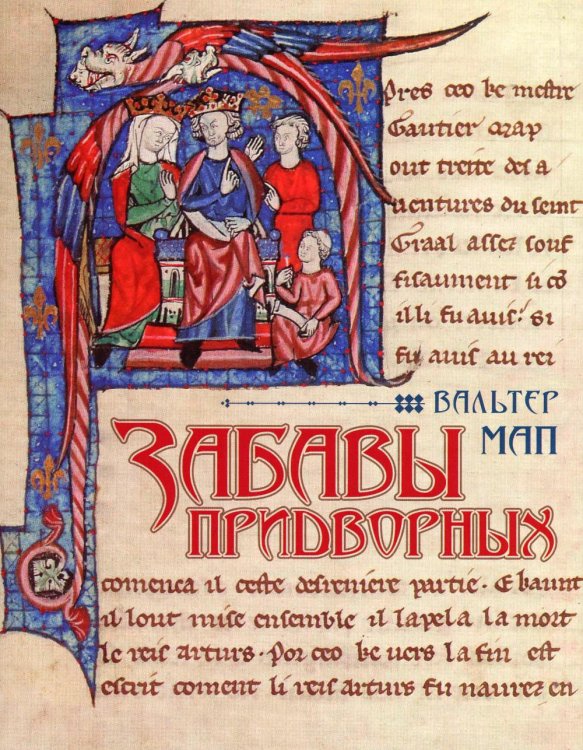 pres ceo be mestre
Gautier map
out treite des a
uentures du seint
Graal assez souf
fisaument si cō
illi fu auis. si
fu auis au rei
ВАЛЬТЕР
МАП
ЗАБАВЫ
ПРИДВОРНЫХ
comenca il ceste desreniere partie. E baunt
il lout mise ensemble il lapela la mort
le reis arturs. Por ceo be uers la fin est
escrit coment li reis arturs fu naurez en